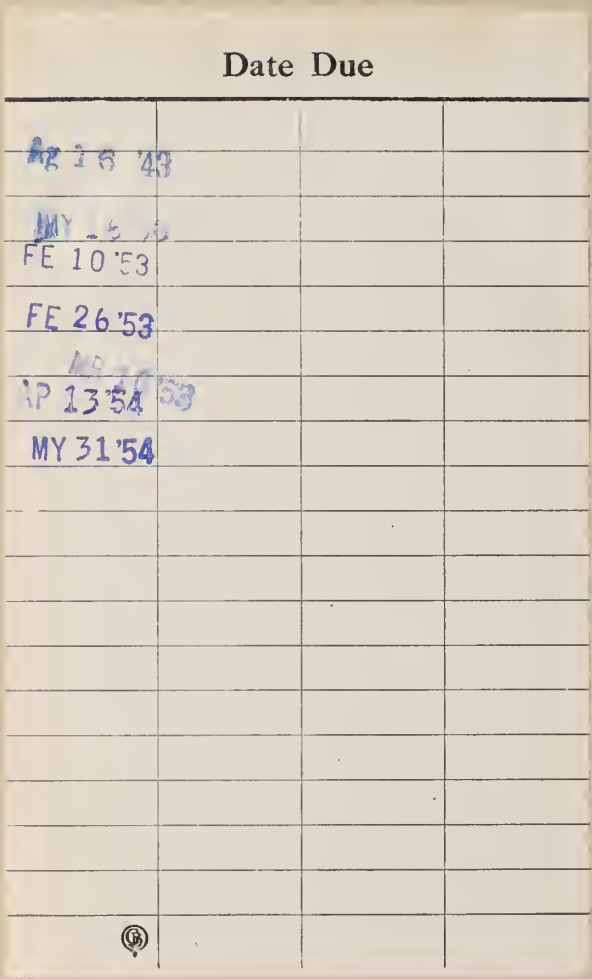 Date Due
Ag 16 '43
MY
FE 10 '53
FE 26 '53
'53
AP 13 '54
MY 31 '54